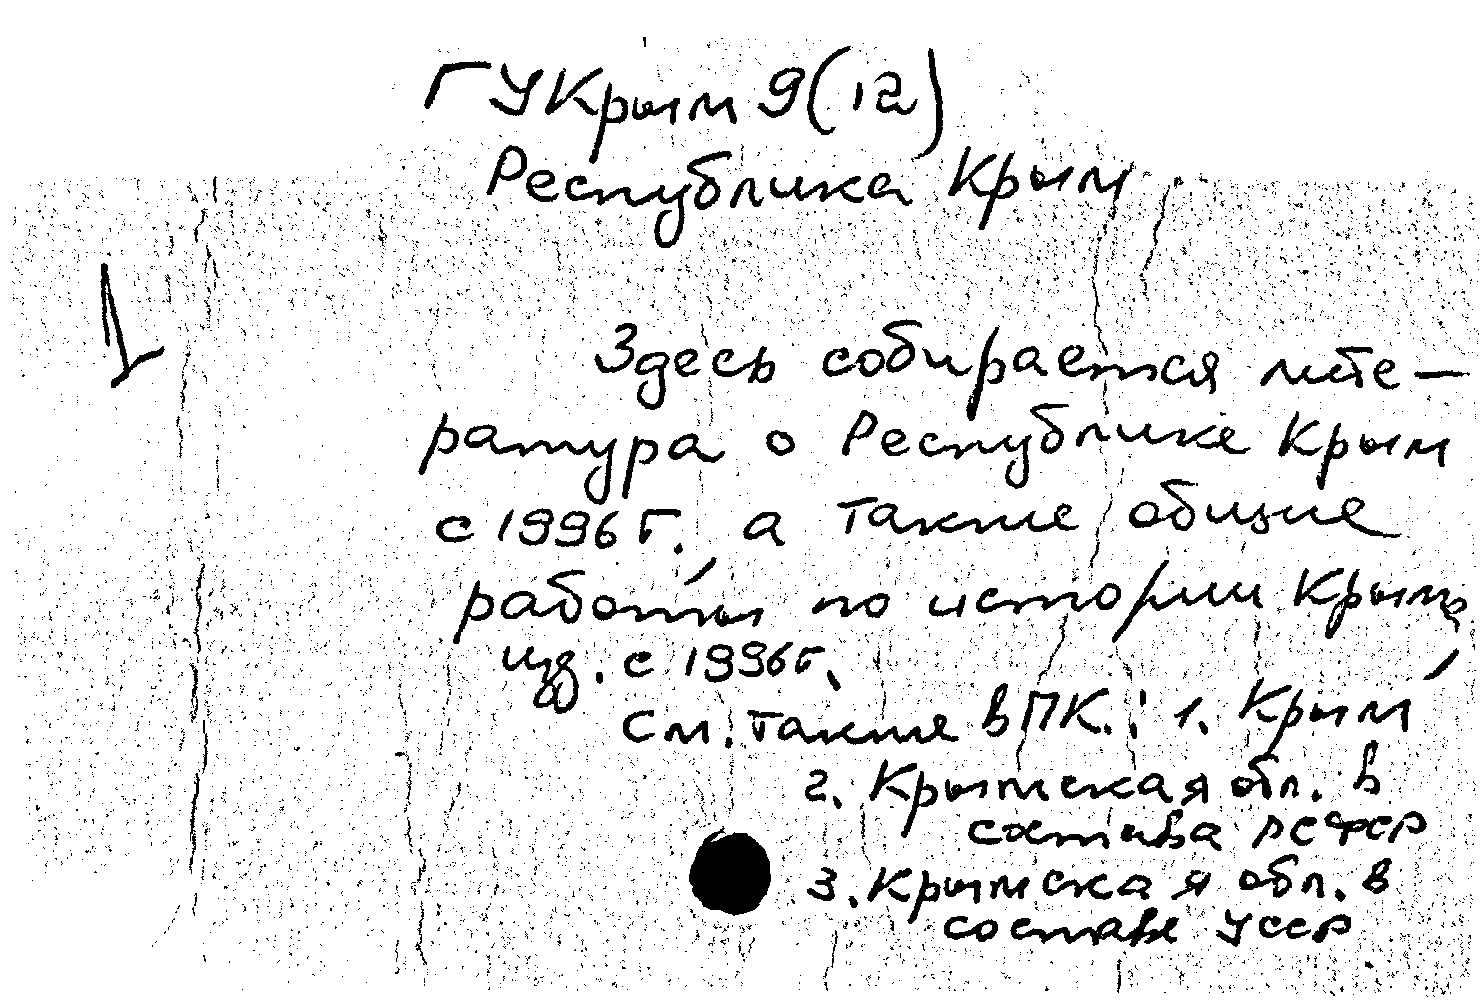 ГУКрым 9(12)
Республика Крым
1
Здесь собирается лите-
ратура о Республике Крым
с 1996 г., а также общие
работы по истории Крыма,
изд. с 1996 г.
См. также в ПК.: 1. Крым
2. Крымская обл. в
состава РСФСР
3. Крымская обл. в
составе УССР